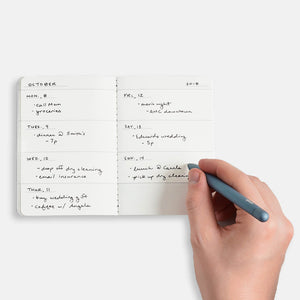 OCTOBER
MON., 8
· call Mom
· groceries
TUES., 9
· dinner @
· 7p
WED., 10
· drop off dry cleaning
· email insurance
THUR., 11
· buy wedding gift
· coffee w/ Angela
2018
FRI., 12
· mark night
· downtown
SAT., 13
· Edwards wedding
· 5p
SUN., 14
· lunch @
· pick up dry cleaning